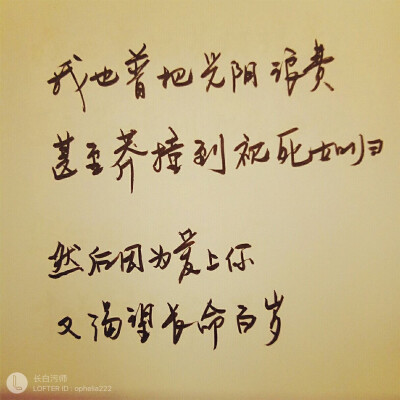 我也曾把光阴浪费
甚至莽撞到视死如归
然后因为爱上你
又渴望长命百岁
长白污师
LOFTER ID : ophelie222